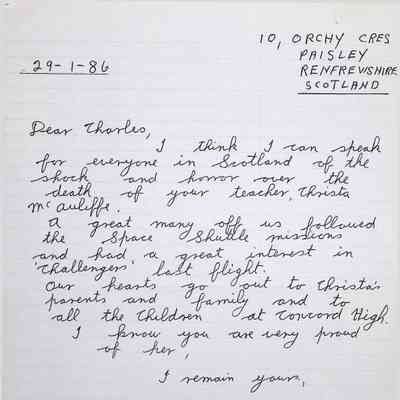 10, ORCHY CRES
PAISLEY
RENFREWSHIRE
SCOTLAND
29-1-86
Dear Charles,
I think I can speak
for everyone in Scotland of the
shock and horror over the
death of your teacher, Christa
McAuliffe.
A great many off us followed
the Space Shuttle missions
and had a great interest in
'Challengers' last flight.
Our hearts go out to Christa's
parents and family and to
all the Children at Concord High.
I know you are very proud
of her,
I remain yours,